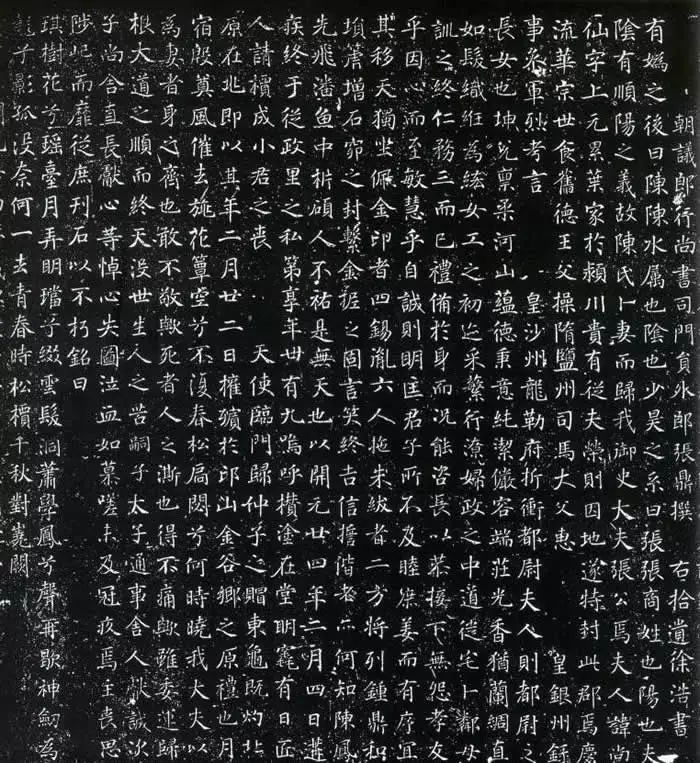 朝議郎行尚書司門員外郎張鼎撰 右拾遺徐浩書
有媯之後曰陳陳水属也陰也少昊之系曰張張商姓也陽也夫
陰有順陽之義故陳氏卜妻而歸我御史大夫張公焉夫人諱尚
仙字上元累葉家於潁川貴有從夫榮則因地遂特封此郡焉慶
流華宗世食舊德王父操隋鹽州司馬大父惠 皇銀州録
事叅軍烈考言 皇沙州龍勒府折衝都尉夫人則都尉之
長女也坤兌禀柔河山藴德秉意純潔儼容端莊光香猶蘭綢直
如髮織紝為綌女工之初也采蘩行潦婦政之中道從宅卜鄰母
訓之終仁務三而已禮備於身而況能咨長以恭接下無怨孝友
乎因心而至敏慧乎自誠則明匡君子所不及睦庶姜而有序宜
其移天獨坐佩金印者四錫胤六人拖朱紱者二方將列鍾鼎和
塤篪增石窌之封繫金柅之固言笑終吉信擔偕老亦何知陳鳳
先飛潘魚中析碩人不祐是無天也以開元廿四年二月四日遘
疾終于從政里之私第享年卌有九嗚呼攢塗在堂明竁有日匠
人請櫝成小君之喪 天使臨門歸仲子之賵東龜既灼北
原在兆即以其年二月廿二日權殯於邙山金谷鄉之原禮也月
宿殷奠風催去旐花簟空兮不復春松扃閟兮何時曉我大夫以
為妻者身之齊也敢不敬歟死者人之澌也得不痛歟雖委運歸
根大道之順而終天没世生人之苦嗣子太子通事舍人獻誠次
子尚舍直長獻心等悼心失圖泣血如慕嗟未及冠疚焉主喪思
陟屺而靡從庶刊石以不朽銘曰
琪樹花兮瑶臺月弄明璫兮綴雲髮洞蕭學鳳兮聲再歇神劒為
龍兮影孤没奈何一去青春時松檟千秋對嵩闕